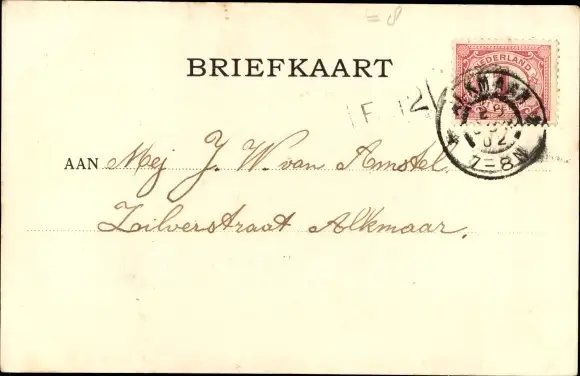 = 8
BRIEFKAART
NEDERLAND
1
ALKMAAR
02
7-8N
AAN Mej J. W. van Amstel.
Zilverstraat Alkmaar.